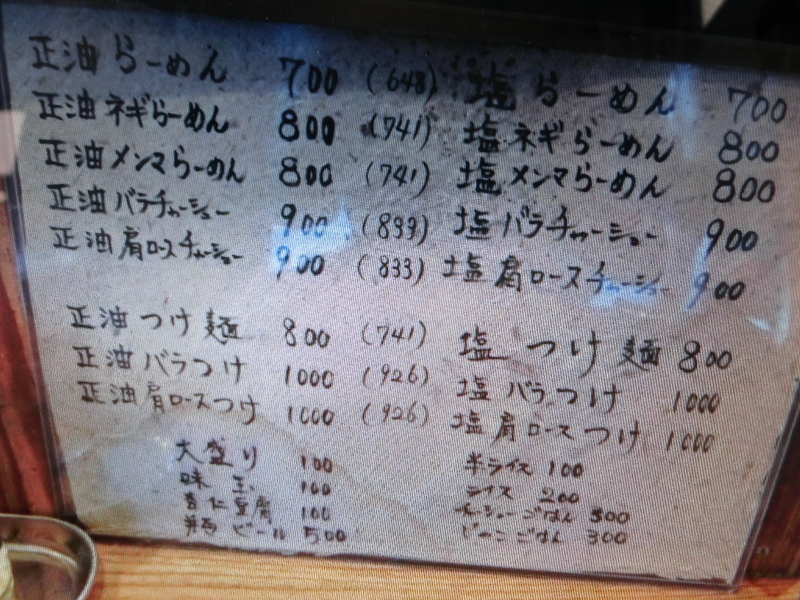 正油 らーめん 700 (648) 塩 らーめん 700
正油 ネギらーめん 800 (741) 塩 ネギらーめん 800
正油 メンマらーめん 800 (741) 塩 メンマらーめん 800
正油 バラチャーシュー 900 (833) 塩 バラチャーシュー 900
正油 肩ロースチャーシュー 900 (833) 塩 肩ロースチャーシュー 900
正油 つけ麺 800 (741) 塩 つけ麺 800
正油 バラつけ 1000 (926) 塩 バラつけ 1000
正油 肩ロースつけ 1000 (926) 塩 肩ロースつけ 1000
大盛り 100 半ライス 100
味玉 100 ライス 200
杏仁豆腐 100 チャーシューごはん 300
ビール 500 じゃこごはん 300